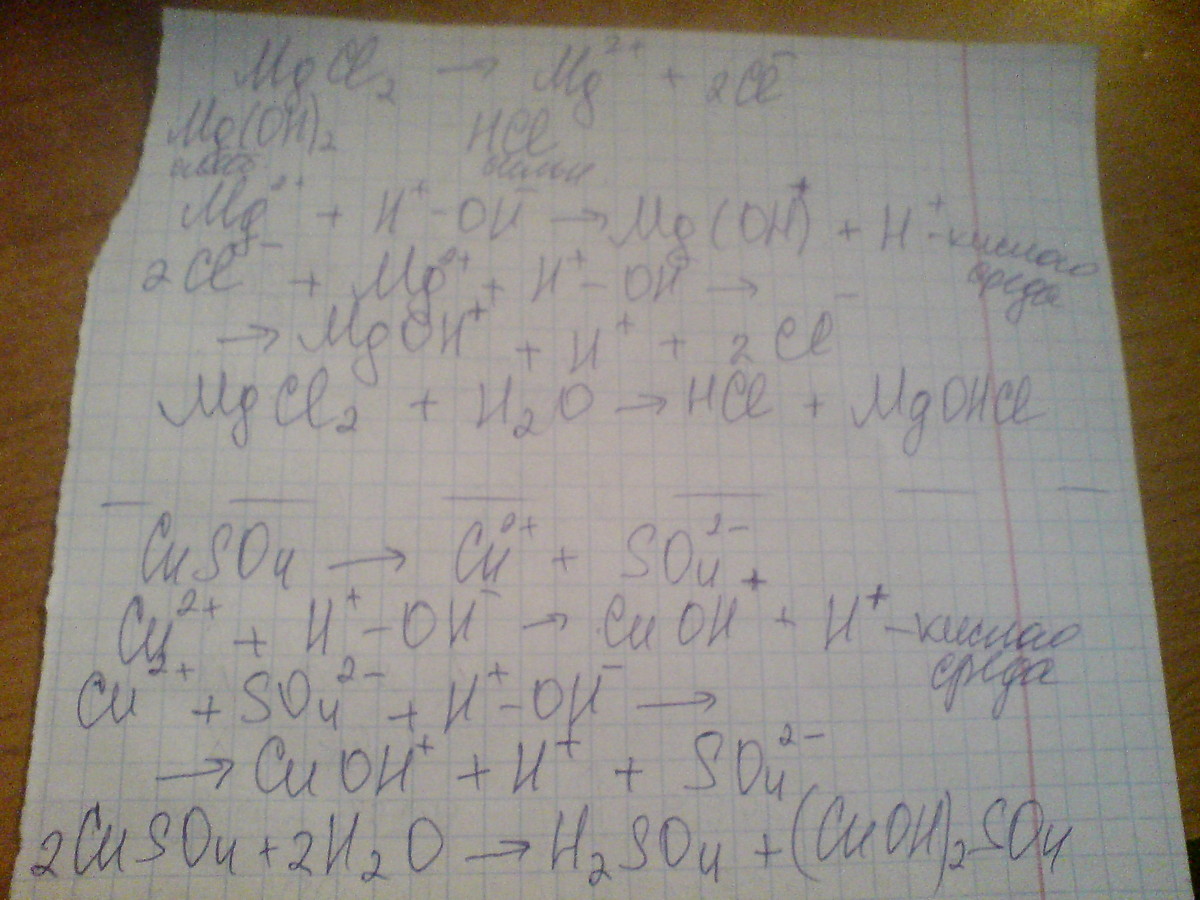 MgCl₂ → Mg²⁺ + 2Cl⁻
Mg(OH)₂ HCl
слаб сильн
Mg²⁺ + H⁺-OH⁻ → Mg(OH)⁺ + H⁺ - кислая
среда
2Cl⁻ + Mg²⁺ + H⁺ - OH⁻ →
→ MgOH⁺ + H⁺ + 2Cl⁻
MgCl₂ + H₂O → HCl + MgOHCl
CuSO₄ → Cu²⁺ + SO₄²⁻
Cu²⁺ + H⁺-OH⁻ → CuOH⁺ + H⁺ - кислая
среда
Cu²⁺ + SO₄²⁻ + H⁺-OH⁻ →
→ CuOH⁺ + H⁺ + SO₄²⁻
2CuSO₄ + 2H₂O → H₂SO₄ + (CuOH)₂SO₄